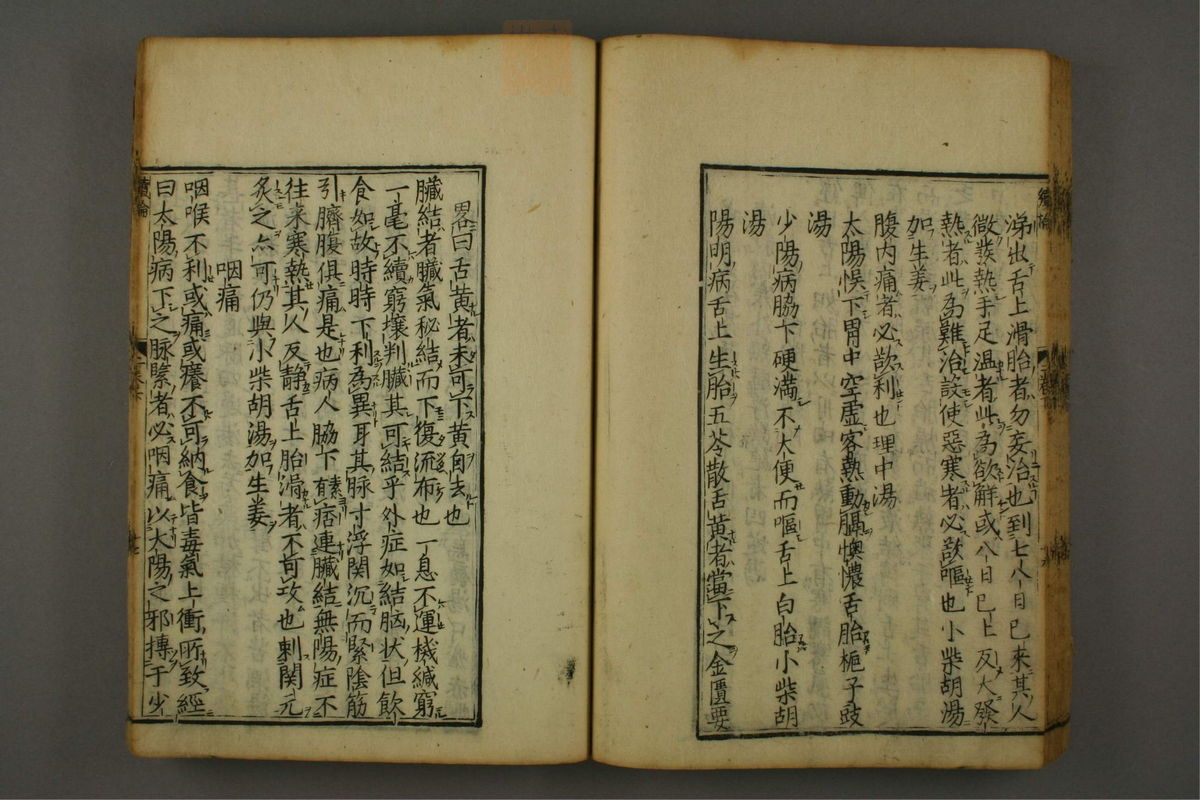 涕出舌上滑胎者勿妄治也到七八日已来其人
微發熱手足温者此為欲解或八日已上反大發
熱者此為難治設使惡寒者必欲嘔也小柴胡湯
加生姜
腹内痛者必欲利也理中湯
太陽悞下胃中空虚客熱動膈懊憹舌胎梔子豉
湯
少陽病脇下硬満不大便而嘔舌上白胎小柴胡
湯
陽明病舌上生胎五苓散舌黄者當下之金匱要
畧曰舌黄者未可下黄自去也
臓結者臓氣秘結而不復流布也一息不運機緘窮
一毫不續窮壤判臓其可結乎外症如結胸状但飲
食如故時時下利為異耳其脉寸浮関沉而緊陰筋
引臍腹俱痛是也病人脇下有痞連臓結無陽症不
往来寒熱其人反静舌上胎滑者不可攻也刺関元
灸之亦可仍與小柴胡湯加生姜
咽痛
咽喉不利或痛或癢不可納食皆毒氣上衝所致經
曰太陽病下之脉緊者必咽痛以太陽之邪搏于少